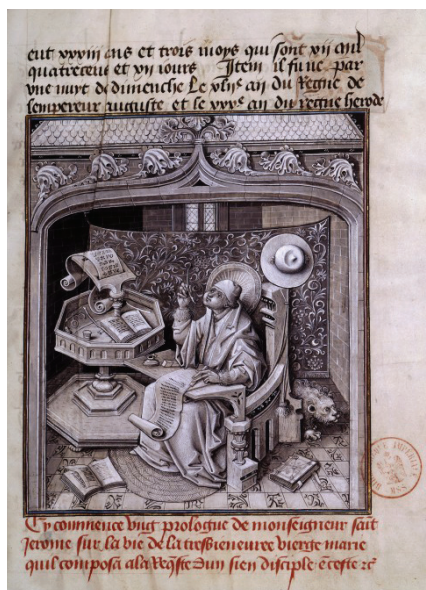 eut xxxiii ans et trois moys qui sont xii mil
quatrecens et xii iours Item il fu ne par
vne nuyt de dimenche Le xlii^e an du Regne de
lempereur auguste et le xxx^e an du regne herode
Cy commence vng prologue de monseigneur saít
Jerome sur la vie de la tresbieneuree vierge marie
quil composa a la Reqste dun sien disciple